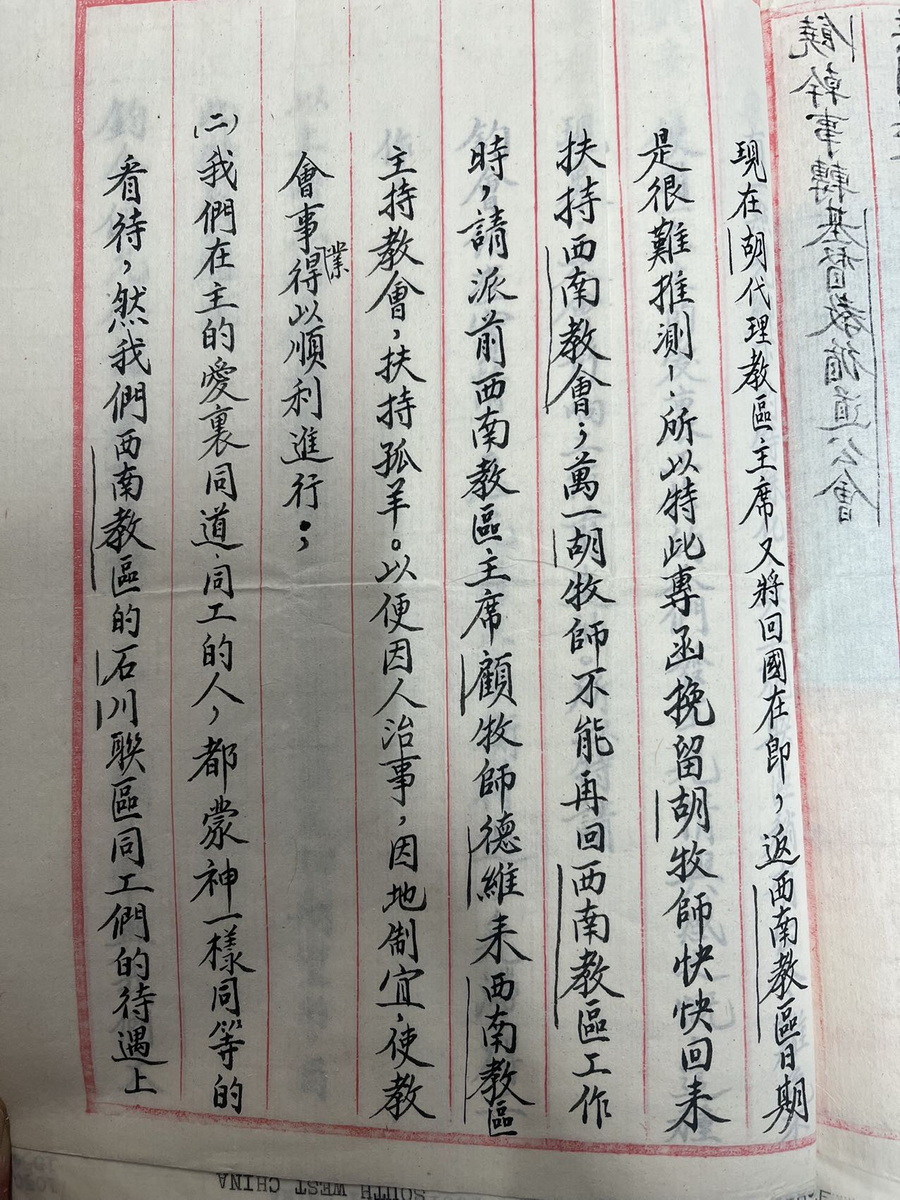 現在胡代理教區主席又將回國在即，返西南教區日期
是很難推測！所以特此專函挽留胡牧師快快回来
扶持西南教會；萬一胡牧師不能再回西南教區工作
時，請派前西南教區主席顧牧師德維来西南教區
主持教會，扶持孤羊。以便因人治事，因地制宜，使教
會事業得以順利進行；
(二)我們在主的愛裏同道同工的人，都蒙神一樣同等的
看待，然我們西南教區的石川聯區同工們的待遇上
饒幹事轉基督教循道公會
SOUTH WEST CHINA